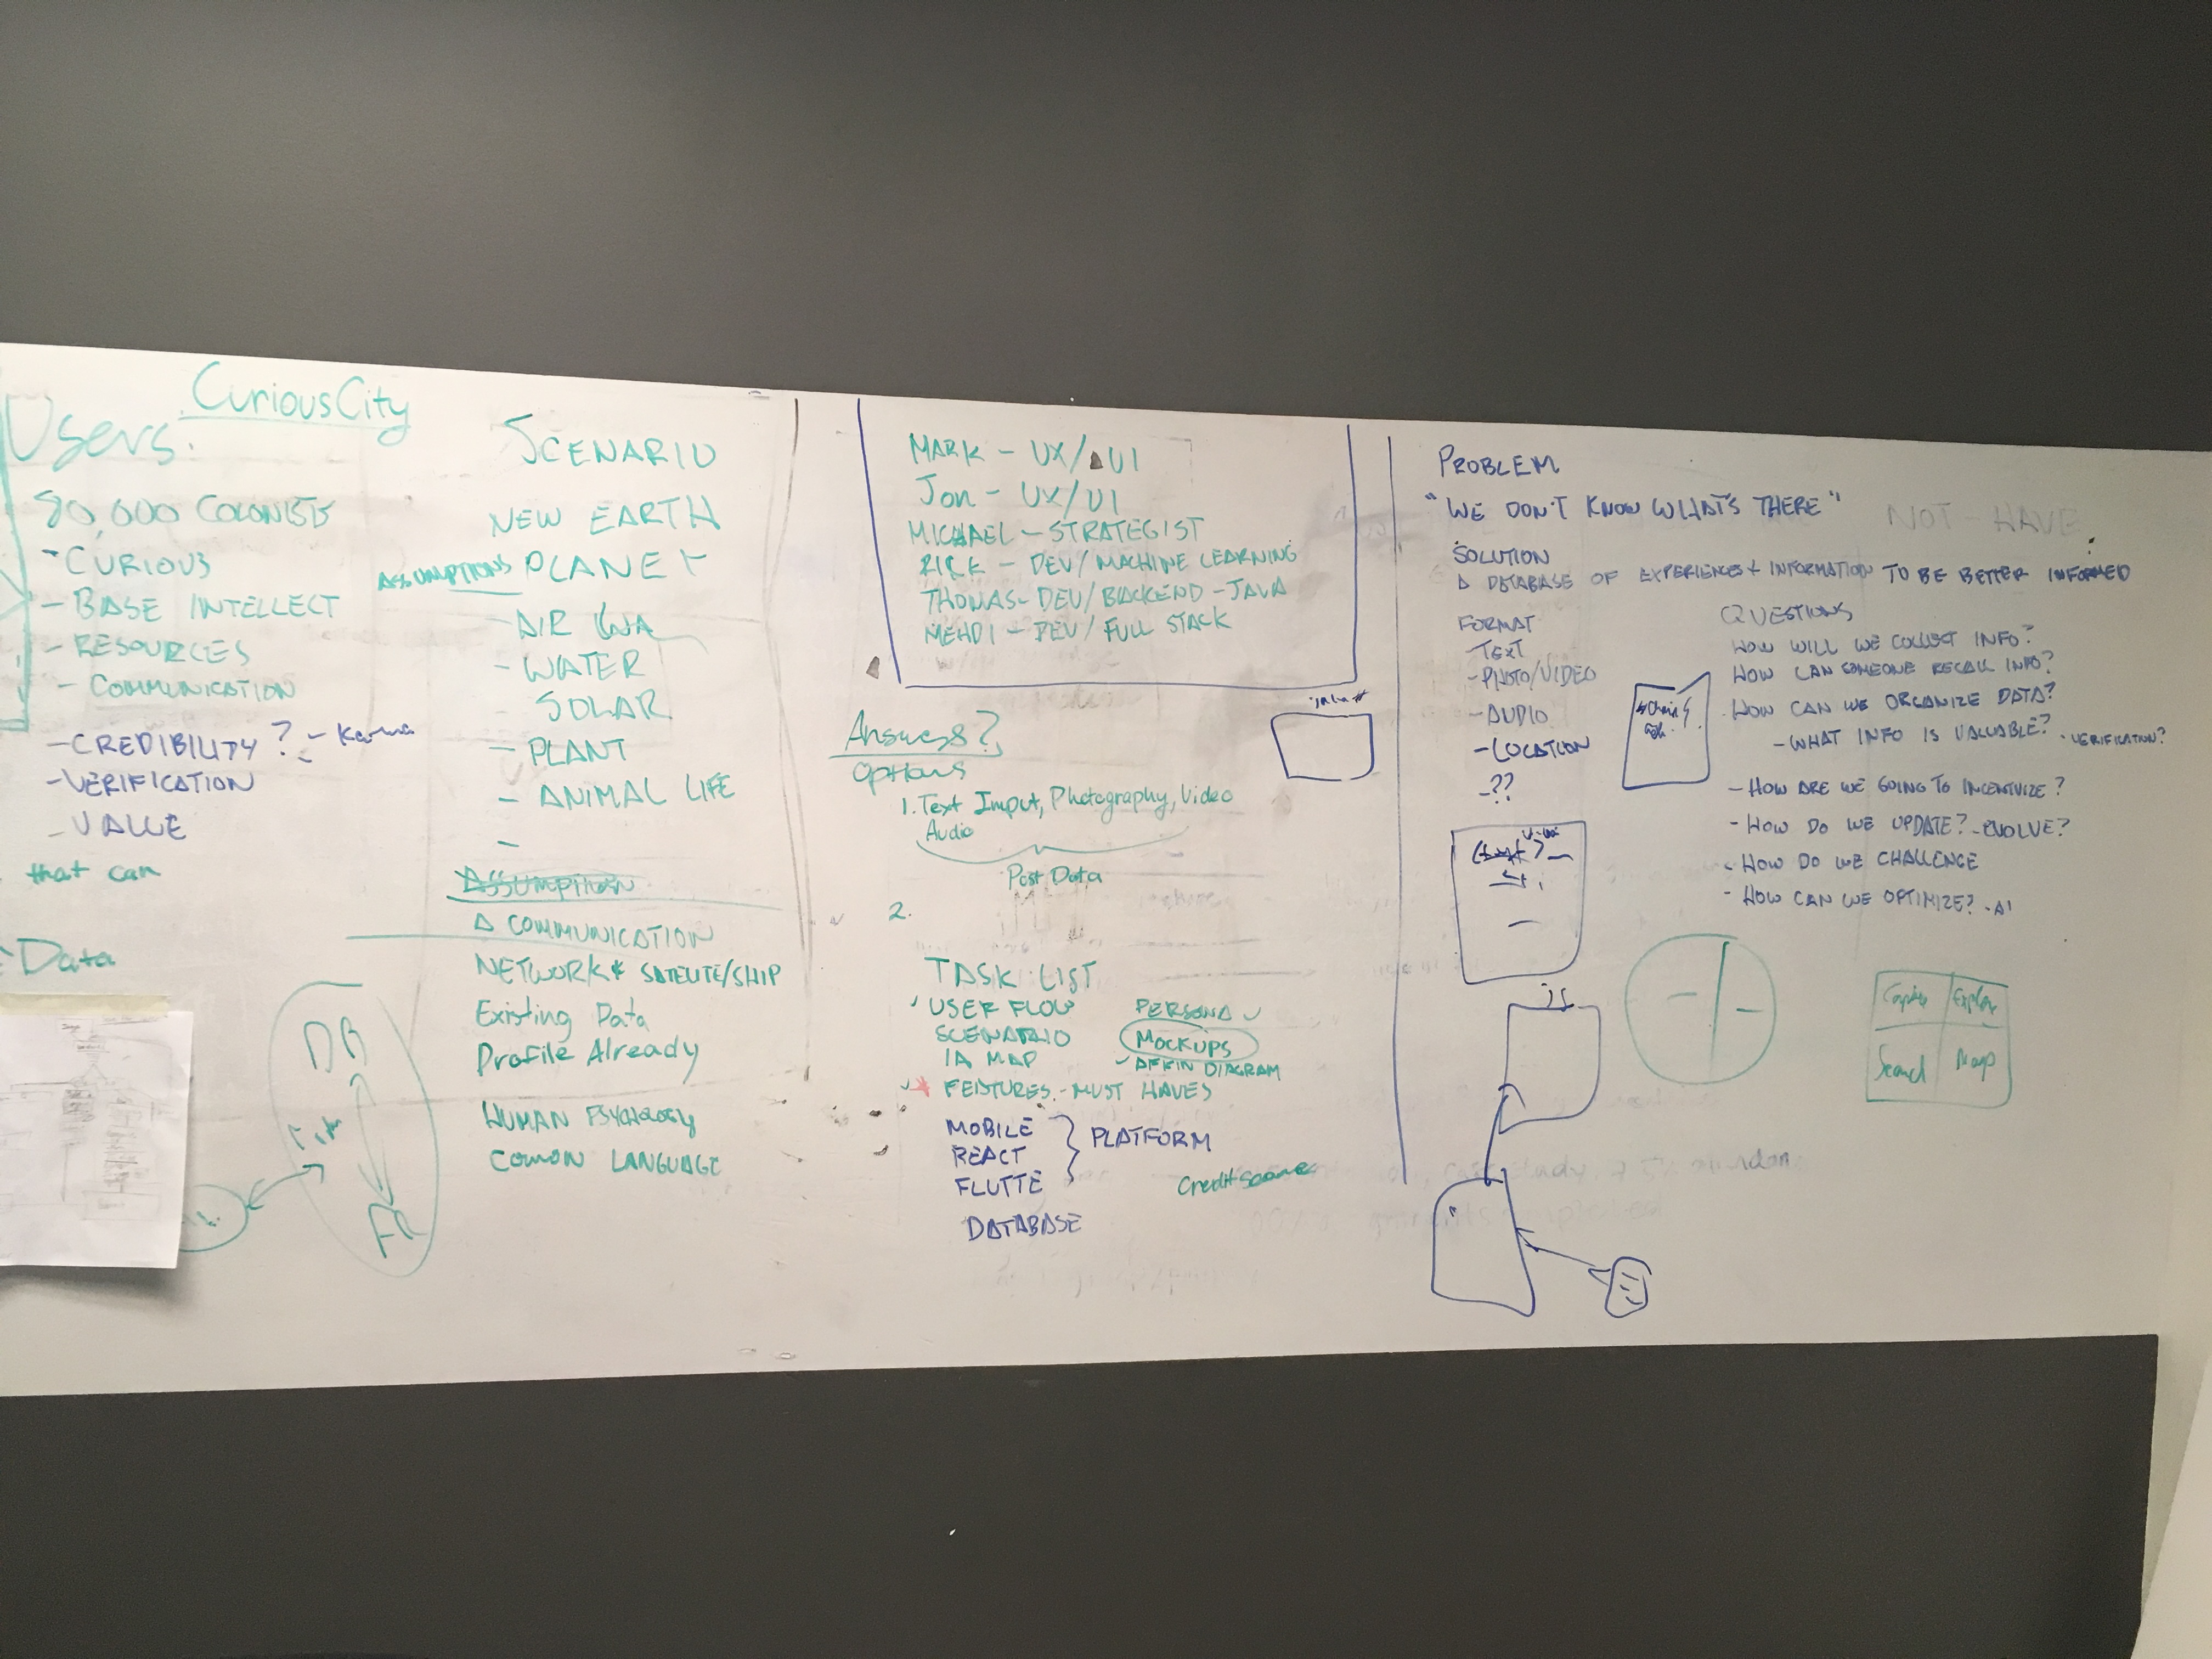 CuriousCity
Users:
80,000 COLONISTS
- CURIOUS
- BASE INTELLECT
- RESOURCES
- COMMUNICATION
- CREDIBILITY ? - Karma
- VERIFICATION
- VALUE
that can
Data
DB
SCENARIO
NEW EARTH
PLANET
ASSUMPTIONS
- AIR
- WATER
SOLAR
- PLANT
- ANIMAL LIFE
-
ASSUMPTION
COMMUNICATION
NETWORK * SATELITE/SHIP
Existing Data
Profile Already
HUMAN PSYCHOLOGY
COMON LANGUAGE
MARK - UX/UI
Jon - UX/UI
MICHAEL - STRATEGIST
RICK - DEV/MACHINE LEARNING
THOMAS - DEV/BACKEND - JAVA
MEHDI - DEV/FULL STACK
Options
1. Text Input, Photography, Video
Audio
Post Data
2.
TASK LIST
✓ USER FLOW
SCENARIO
IA MAP
✓ * FEATURES - MUST HAVES
PERSONA ✓
MOCKUPS
✓ AFFIN DIAGRAM
MOBILE
REACT
FLUTTE
PLATFORM
DATABASE
Credit Score
PROBLEM
"WE DON'T KNOW WHAT'S THERE"
NOT - HAVE
SOLUTION
A DATABASE OF EXPERIENCES + INFORMATION TO BE BETTER INFORMED
FORMAT
- TEXT
- PHOTO/VIDEO
- AUDIO
- LOCATION
- ??
QUESTIONS
HOW WILL WE COLLECT INFO?
HOW CAN SOMEONE RECALL INFO?
HOW CAN WE ORGANIZE DATA?
- WHAT INFO IS VALUABLE? - VERIFICATION?
- HOW ARE WE GOING TO INCENTIVIZE?
- HOW DO WE UPDATE? - EVOLVE?
- HOW DO WE CHALLENGE
- HOW CAN WE OPTIMIZE? - AI
Search
Map